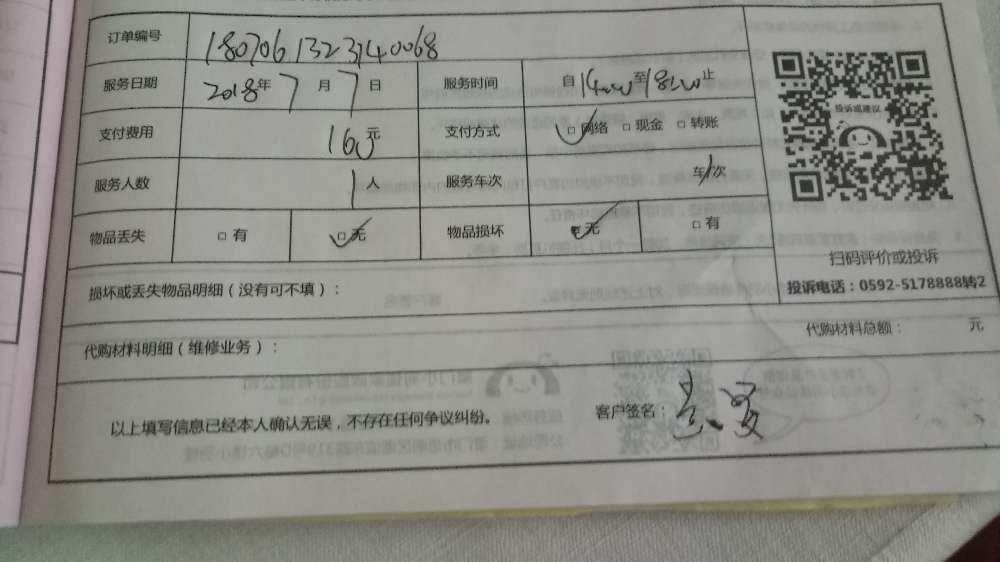 订单编号 1807061323140068
服务日期 2018年7月7日 服务时间 自14:00至18:00止
投诉或建议
支付费用 160元 支付方式 ☑网络 □现金 □转账
服务人数 1人 服务车次 1车次
物品丢失 □有 ☑无 物品损坏 ☑无 □有
扫码评价或投诉
损坏或丢失物品明细（没有可不填）：
投诉电话：0592-5178888转2
代购材料总额： 元
代购材料明细（维修业务）：
以上填写信息已经本人确认无误，不存在任何争议纠纷。
客户签名：